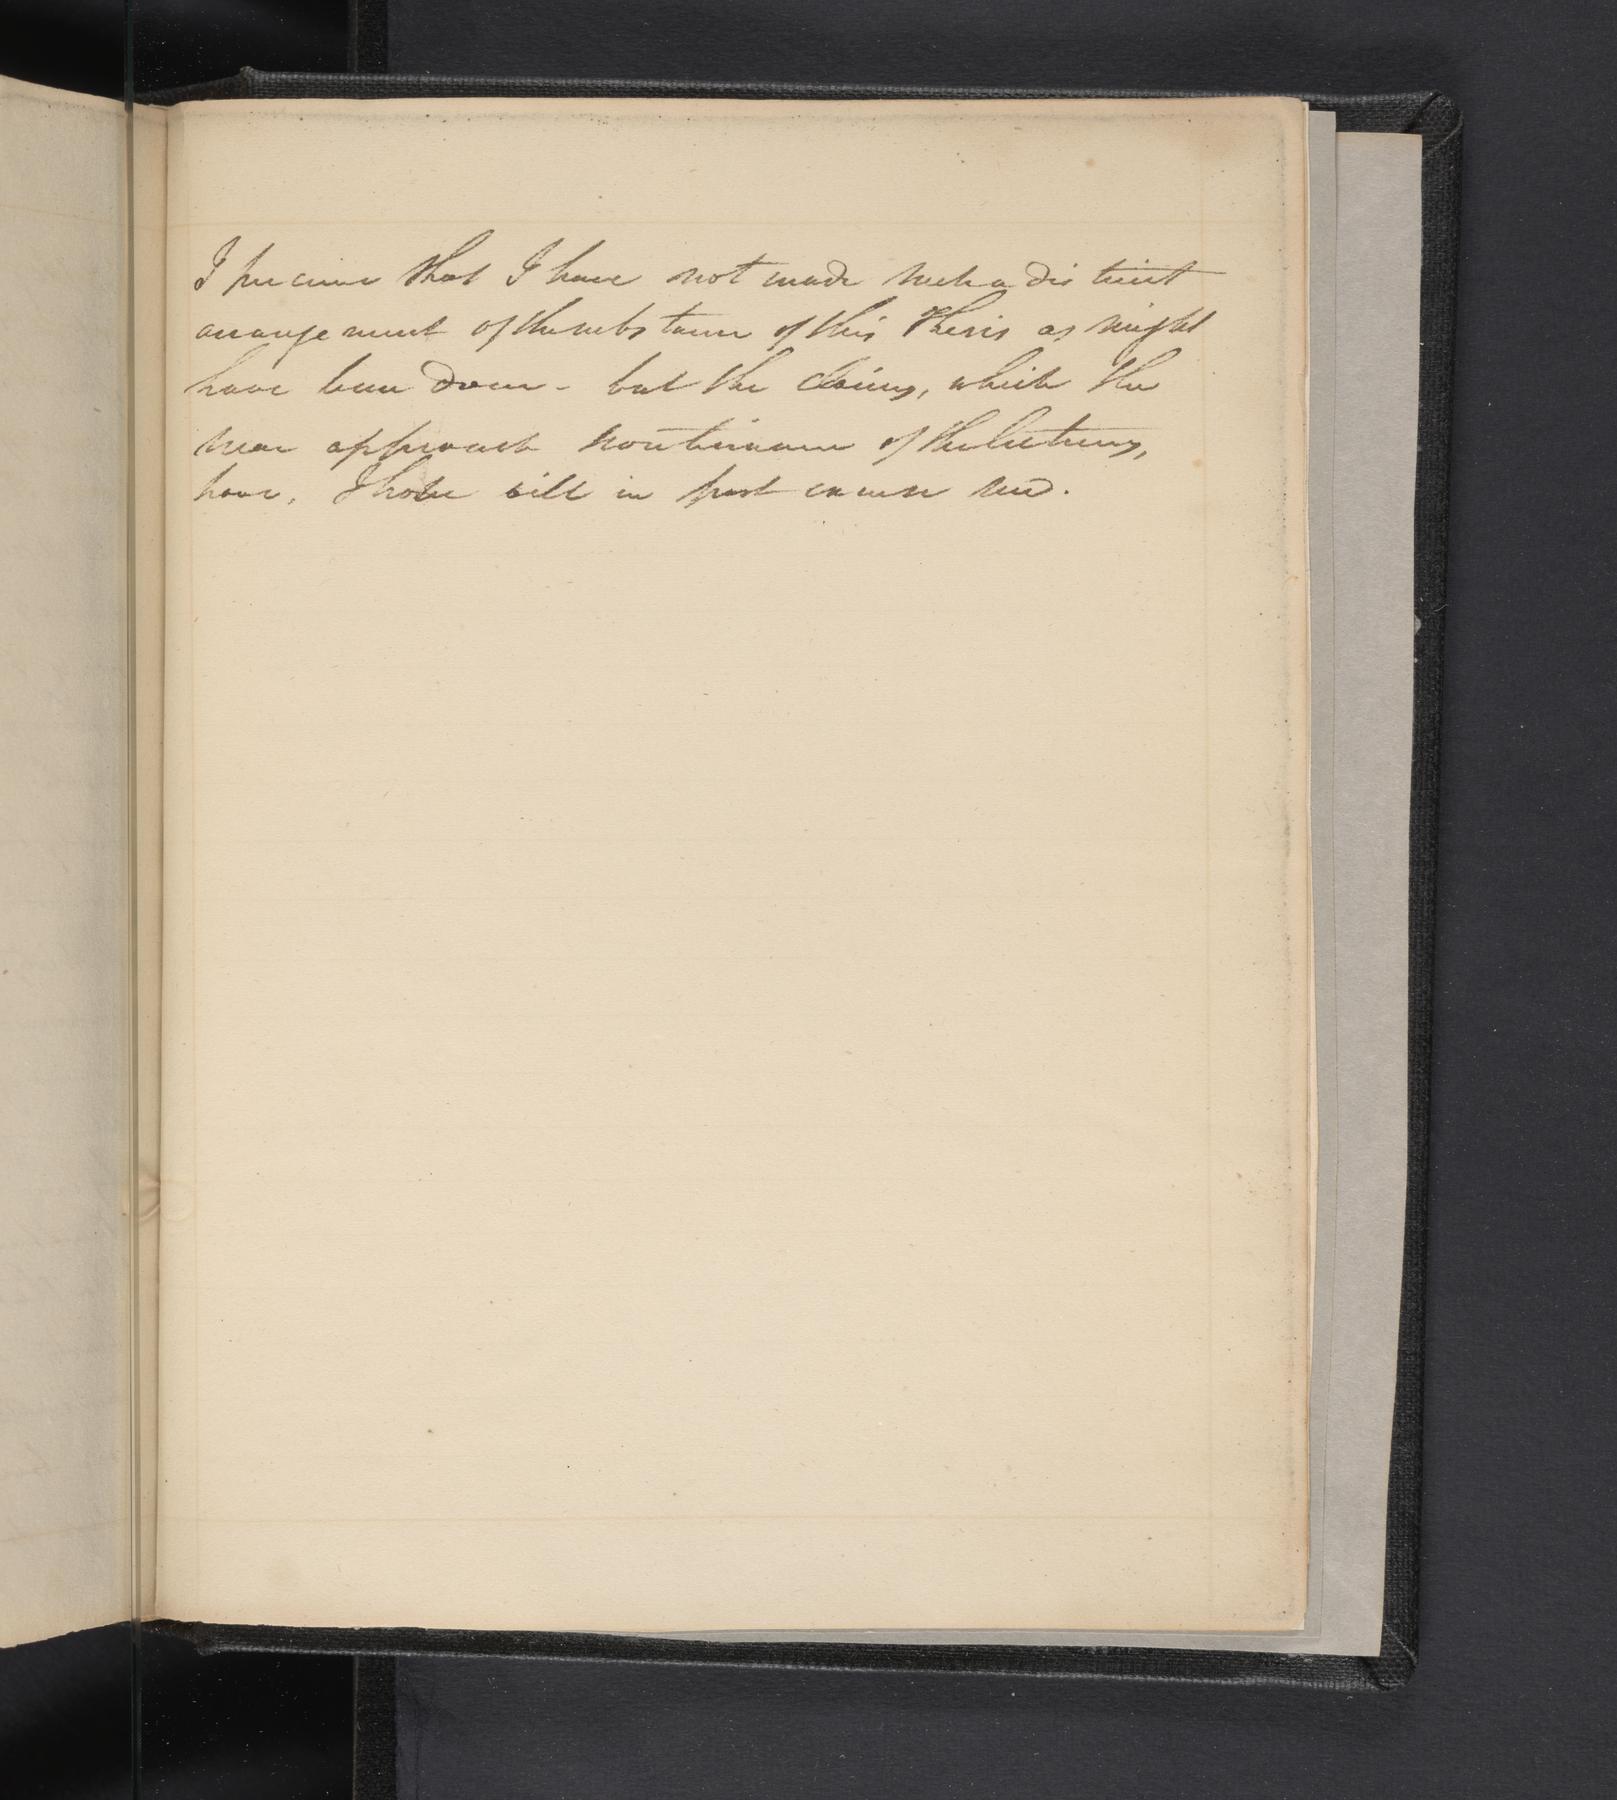 I perceive that I have not made such a distinct
arrangement of the substance of this Thesis as might
have been done - but the claims, which the
near approach & continuance of the lectures,
have, I hope will in part excuse me.